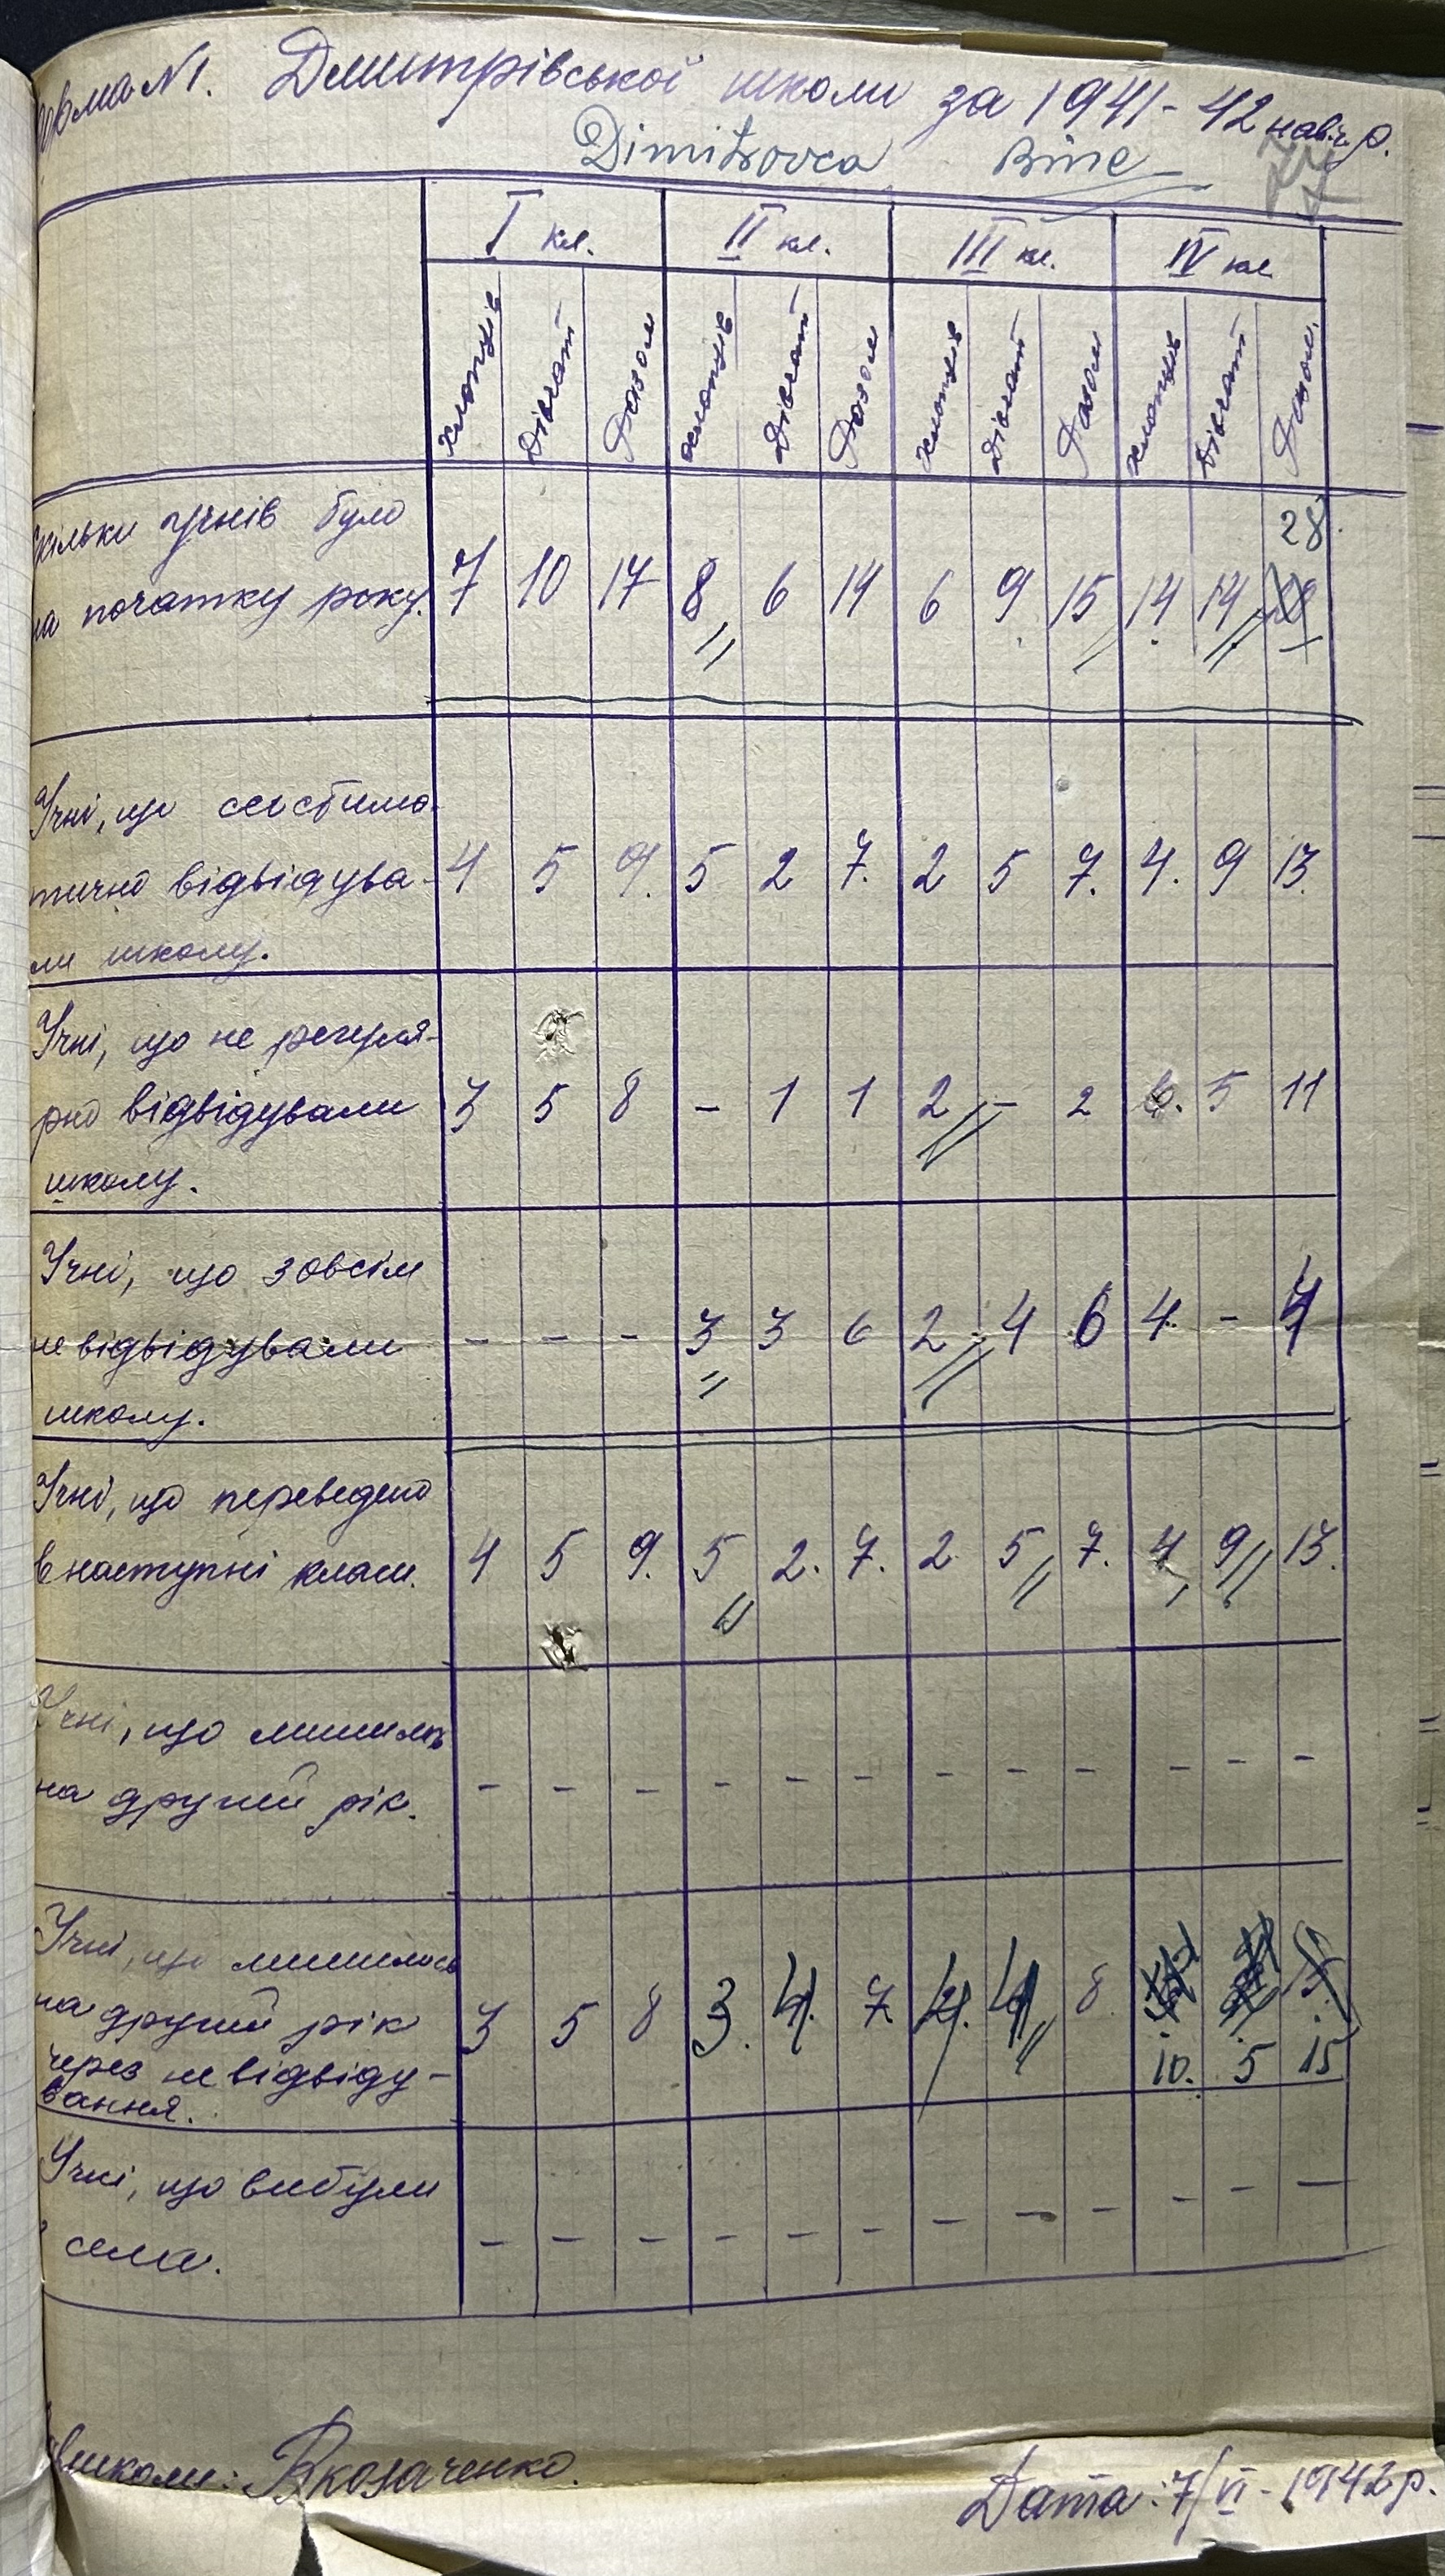 Форма №1. Дмитрівської школи за 1941-42 навч. р.
Dimitrovca Bine
I кл. II кл. III кл. IV кл.
хлопців дівчат Разом хлопців дівчат Разом хлопців дівчат Разом хлопців дівчат Разом.
28.
Скільки учнів було
на початку року. 7 10 17 8 6 14 6 9 15 14 14
Учні, що систима-
тично відвідува- 4 5 9. 5 2 7. 2 5 7. 4. 9 13.
ли школу.
Учні, що не регуля-
рно відвідували 3 5 8 - 1 1 2 - 2 6. 5 11
школу.
Учні, що зовсім
не відвідували - - - 3 3 6 2 4 6 4. - 4
школу.
Учні, що переведено
в наступні класи. 4 5 9. 5 2. 7. 2 5 7. 4 9 13.
Учні, що лишились
на другий рік. - - - - - - - - - - - -
Учні, що лишилось
на другий рік 3 5 8 3. 4. 7 4. 4 8.
через невідвіду- 10. 5 15
вання.
Учні, що вибули
з села. - - - - - - - - - - - -
Зав школи: Вкозаченко.
Дата: 7/VI - 1942 р.